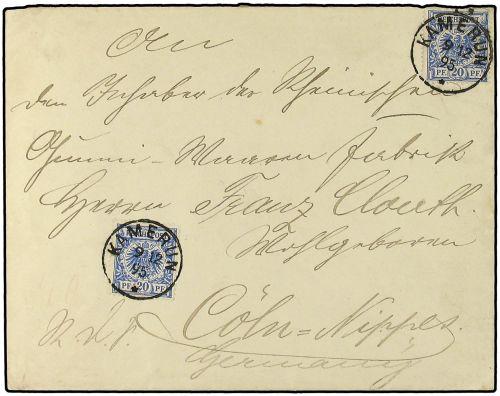 KAMERUN
9 12
95
*
PF 20 PF
An
den Inhaber der Rheinischen
Gummi-Waaren Fabrik
Herrn Franz Clouth.
Wohlgeboren
KAMERUN
9 12
95
*
PF 20 PF
Cöln=Nippes.
Germany